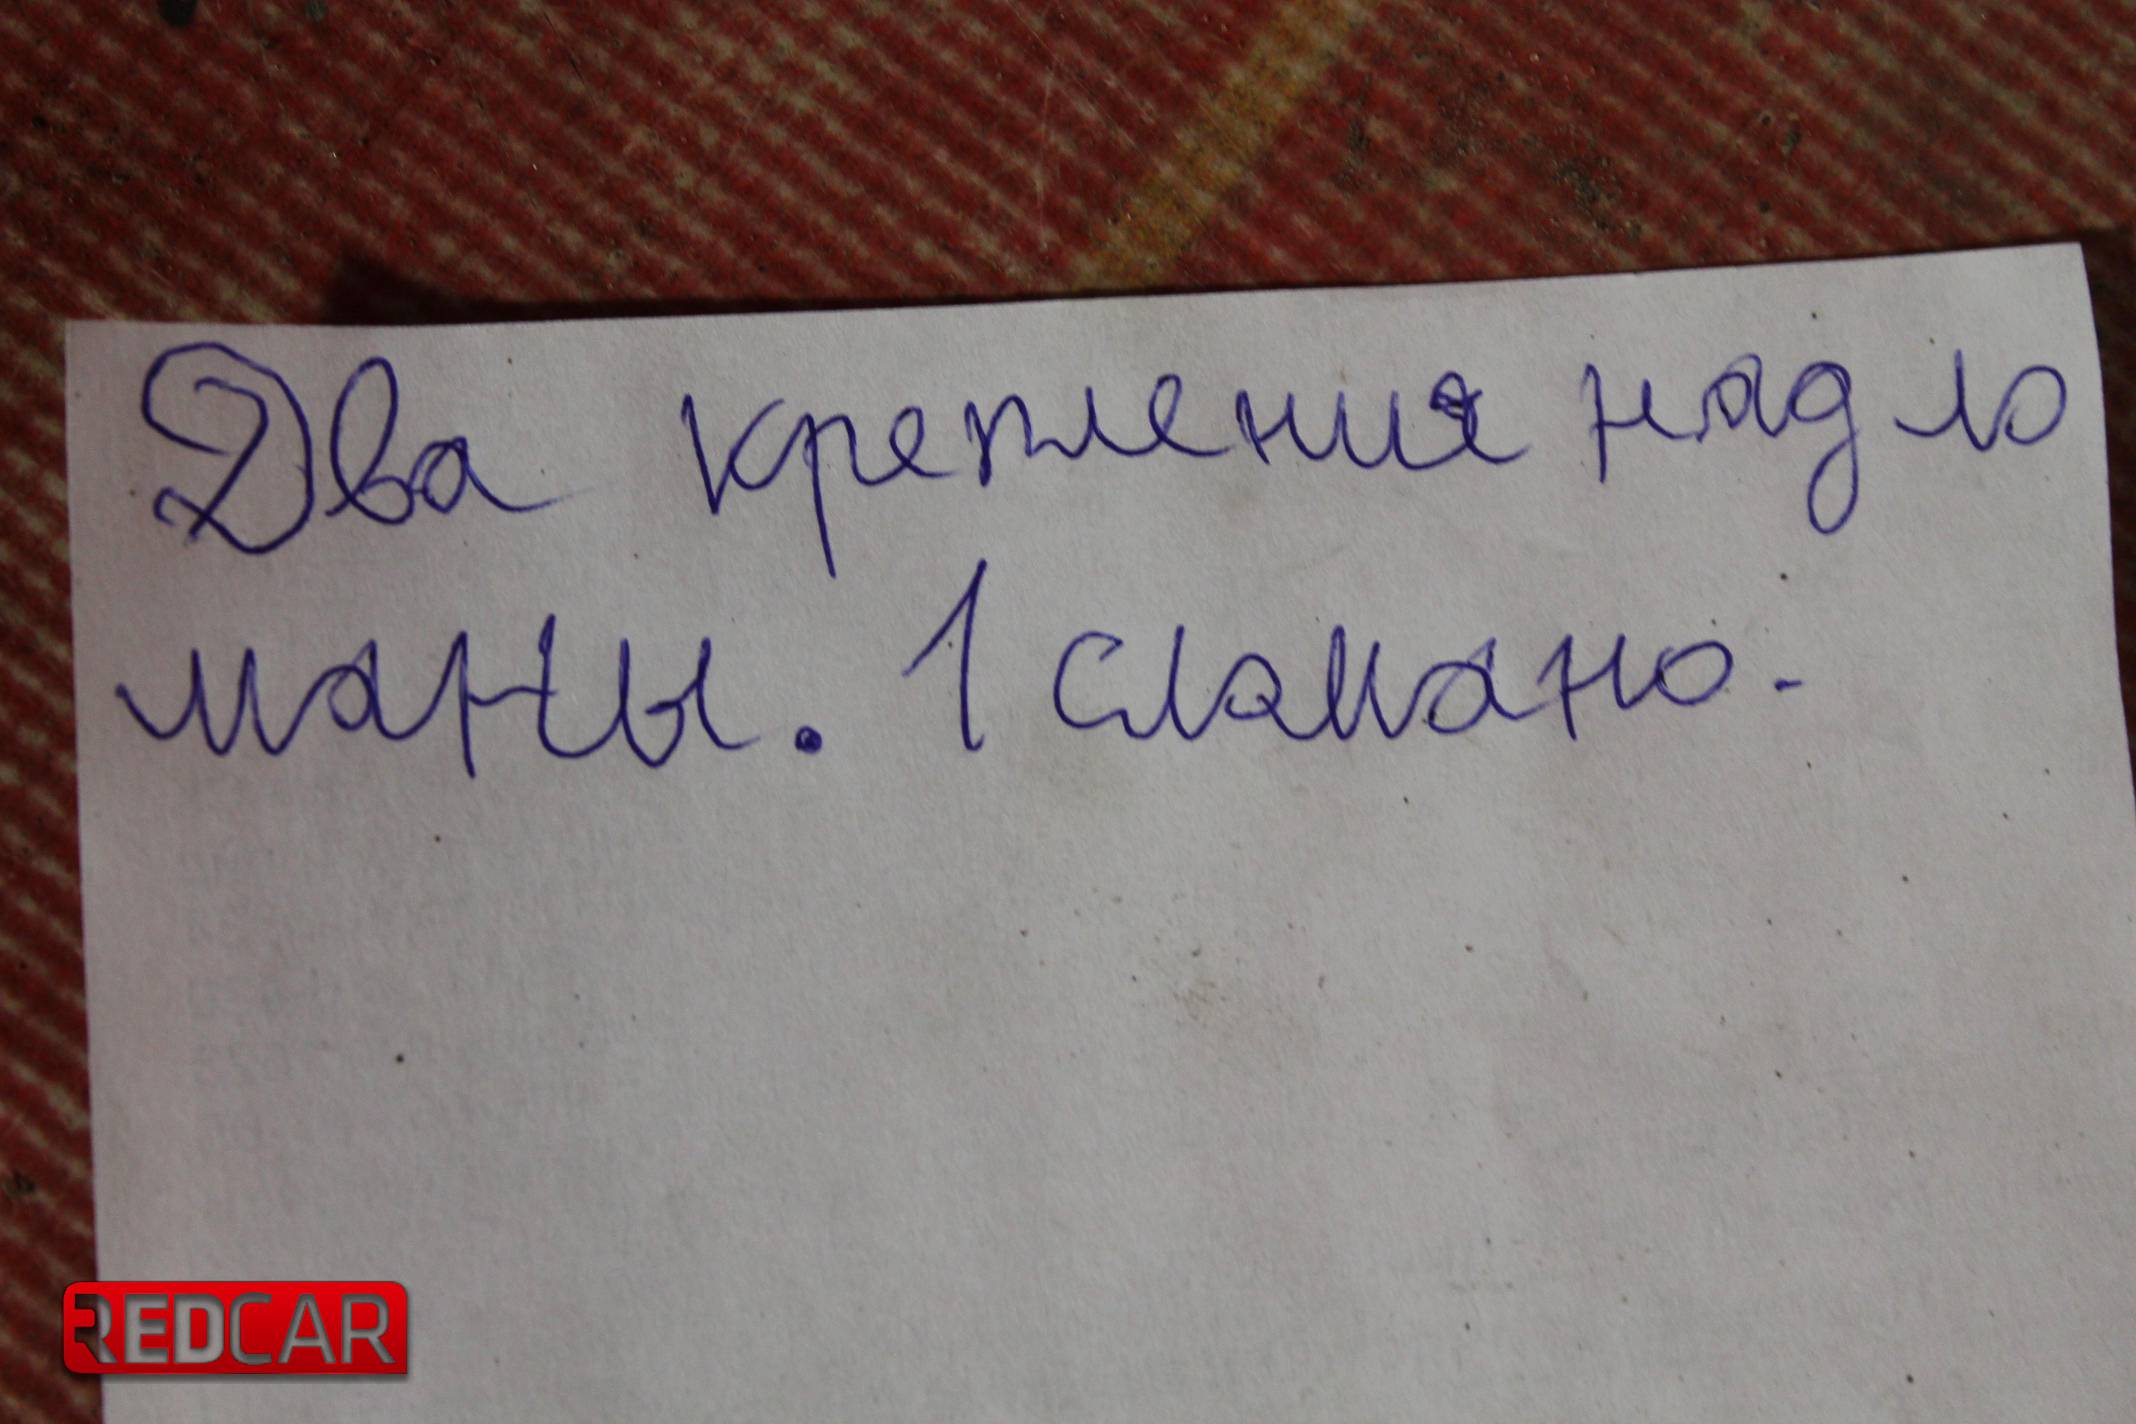 Два крепления надло
маны. 1 сломано.
REDCAR